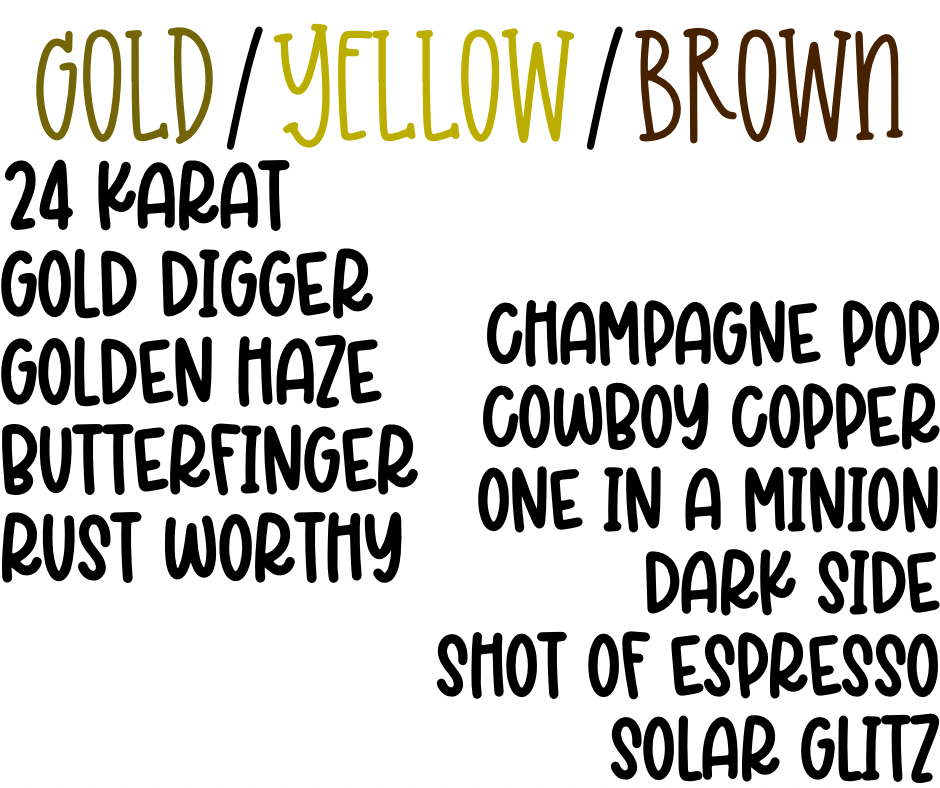 GOLD/YELLOW/BROWN
24 KARAT
GOLD DIGGER
GOLDEN HAZE
BUTTERFINGER
RUST WORTHY
CHAMPAGNE POP
COWBOY COPPER
ONE IN A MINION
DARK SIDE
SHOT OF ESPRESSO
SOLAR GLITZ